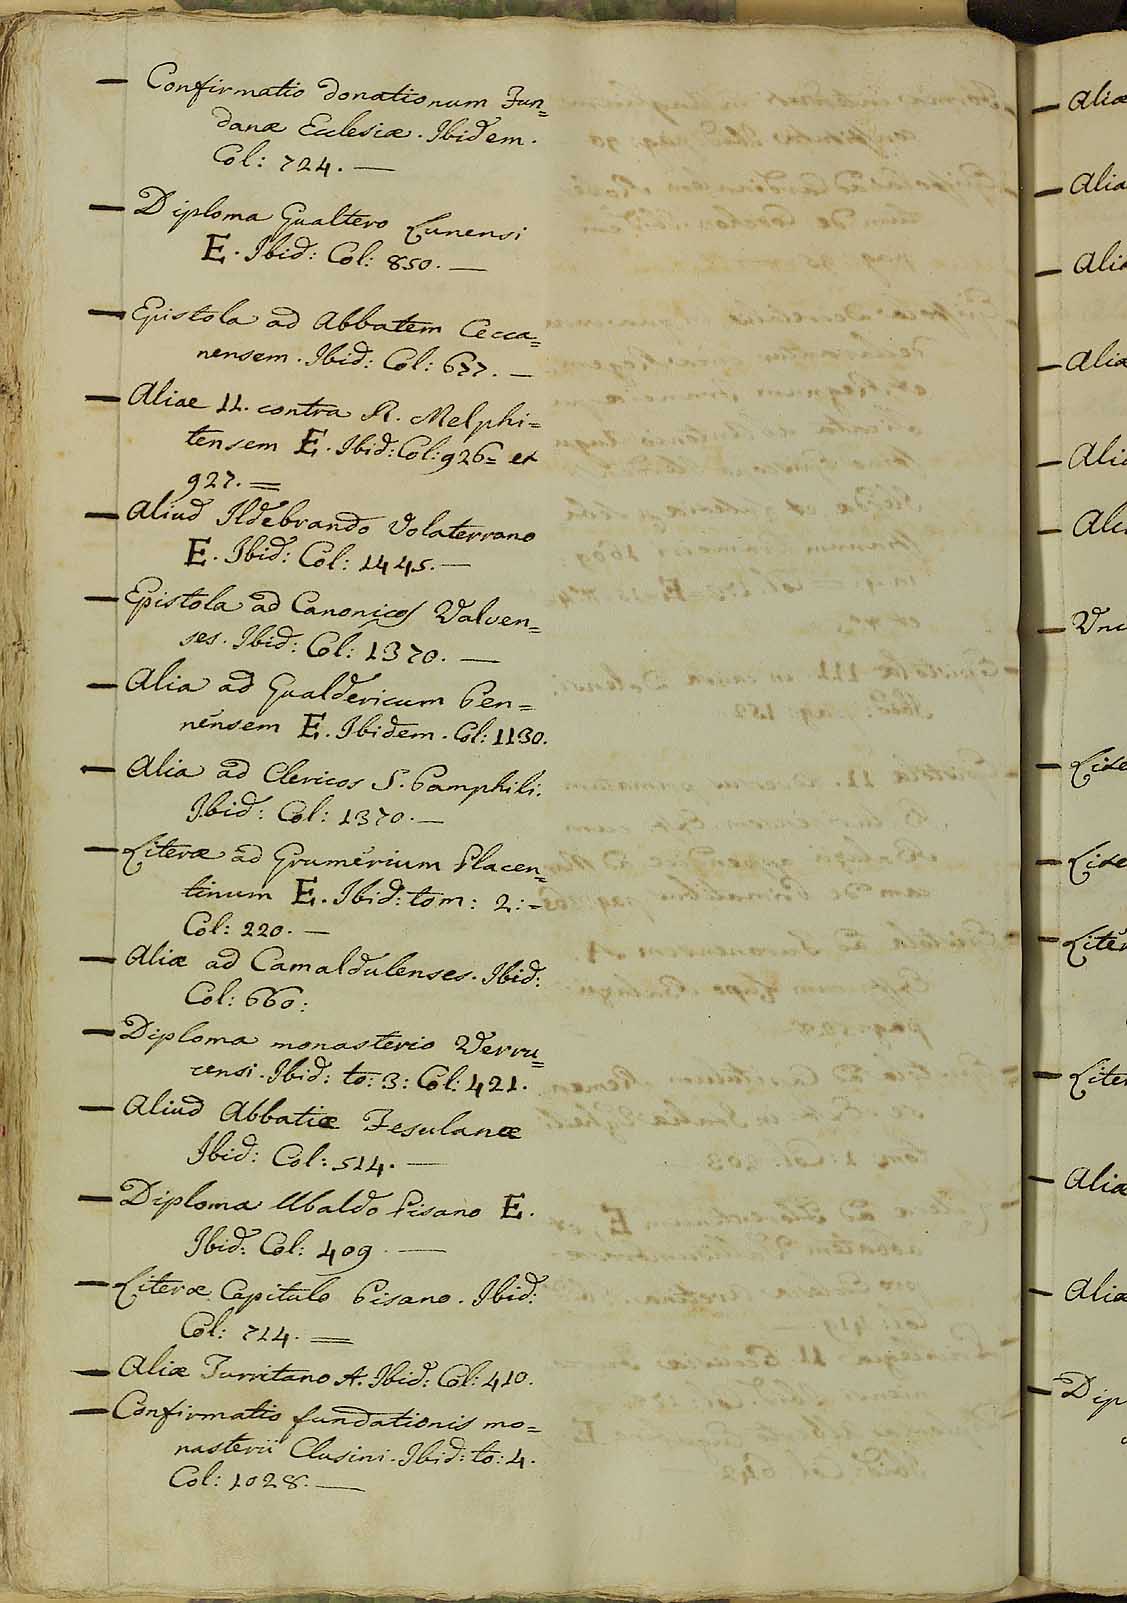 — Confirmatio donationum Fun=
danæ Ecclesiæ. Ibidem.
Col: 724. —
— Diploma Gualtero Lunensi
E. Ibid: Col: 850. —
— Epistola ad Abbatem Cecca=
nensem. Ibid: Col: 677. —
— Aliae 11. contra R. Melphi=
tensem E. Ibid: Col: 926= et
927. =
— Aliud Ildebrando Volaterrano
E. Ibid: Col: 1445. —
— Epistola ad Canonicos Valven=
ses. Ibid: Col: 1370. —
— Alia ad Gualdericum Pen=
nensem E. Ibidem. Col: 1130.
— Alia ad Clericos S. Pamphili.
Ibid: Col: 1370. —
— Literæ ad Grumerium Placen=
tinum E. Ibid: tom: 2: —
Col: 220. —
— Aliæ ad Camaldulenses. Ibid:
Col: 660:
— Diploma monasterio Verru=
censi. Ibid: to: 3: Col: 421.
— Aliud Abbatiæ Fesulanæ
Ibid: Col: 514. —
— Diploma Ubaldo Pisano E.
Ibid: Col: 409. —
— Literæ Capitulo Pisano. Ibid:
Col: 714. =
— Aliæ Turritano A. Ibid: Col: 410.
— Confirmatio fundationis mo=
nasterii Clusini. Ibid: to: 4.
Col: 1028. —
— Aliæ
— Alia
— Aliæ
— Dip